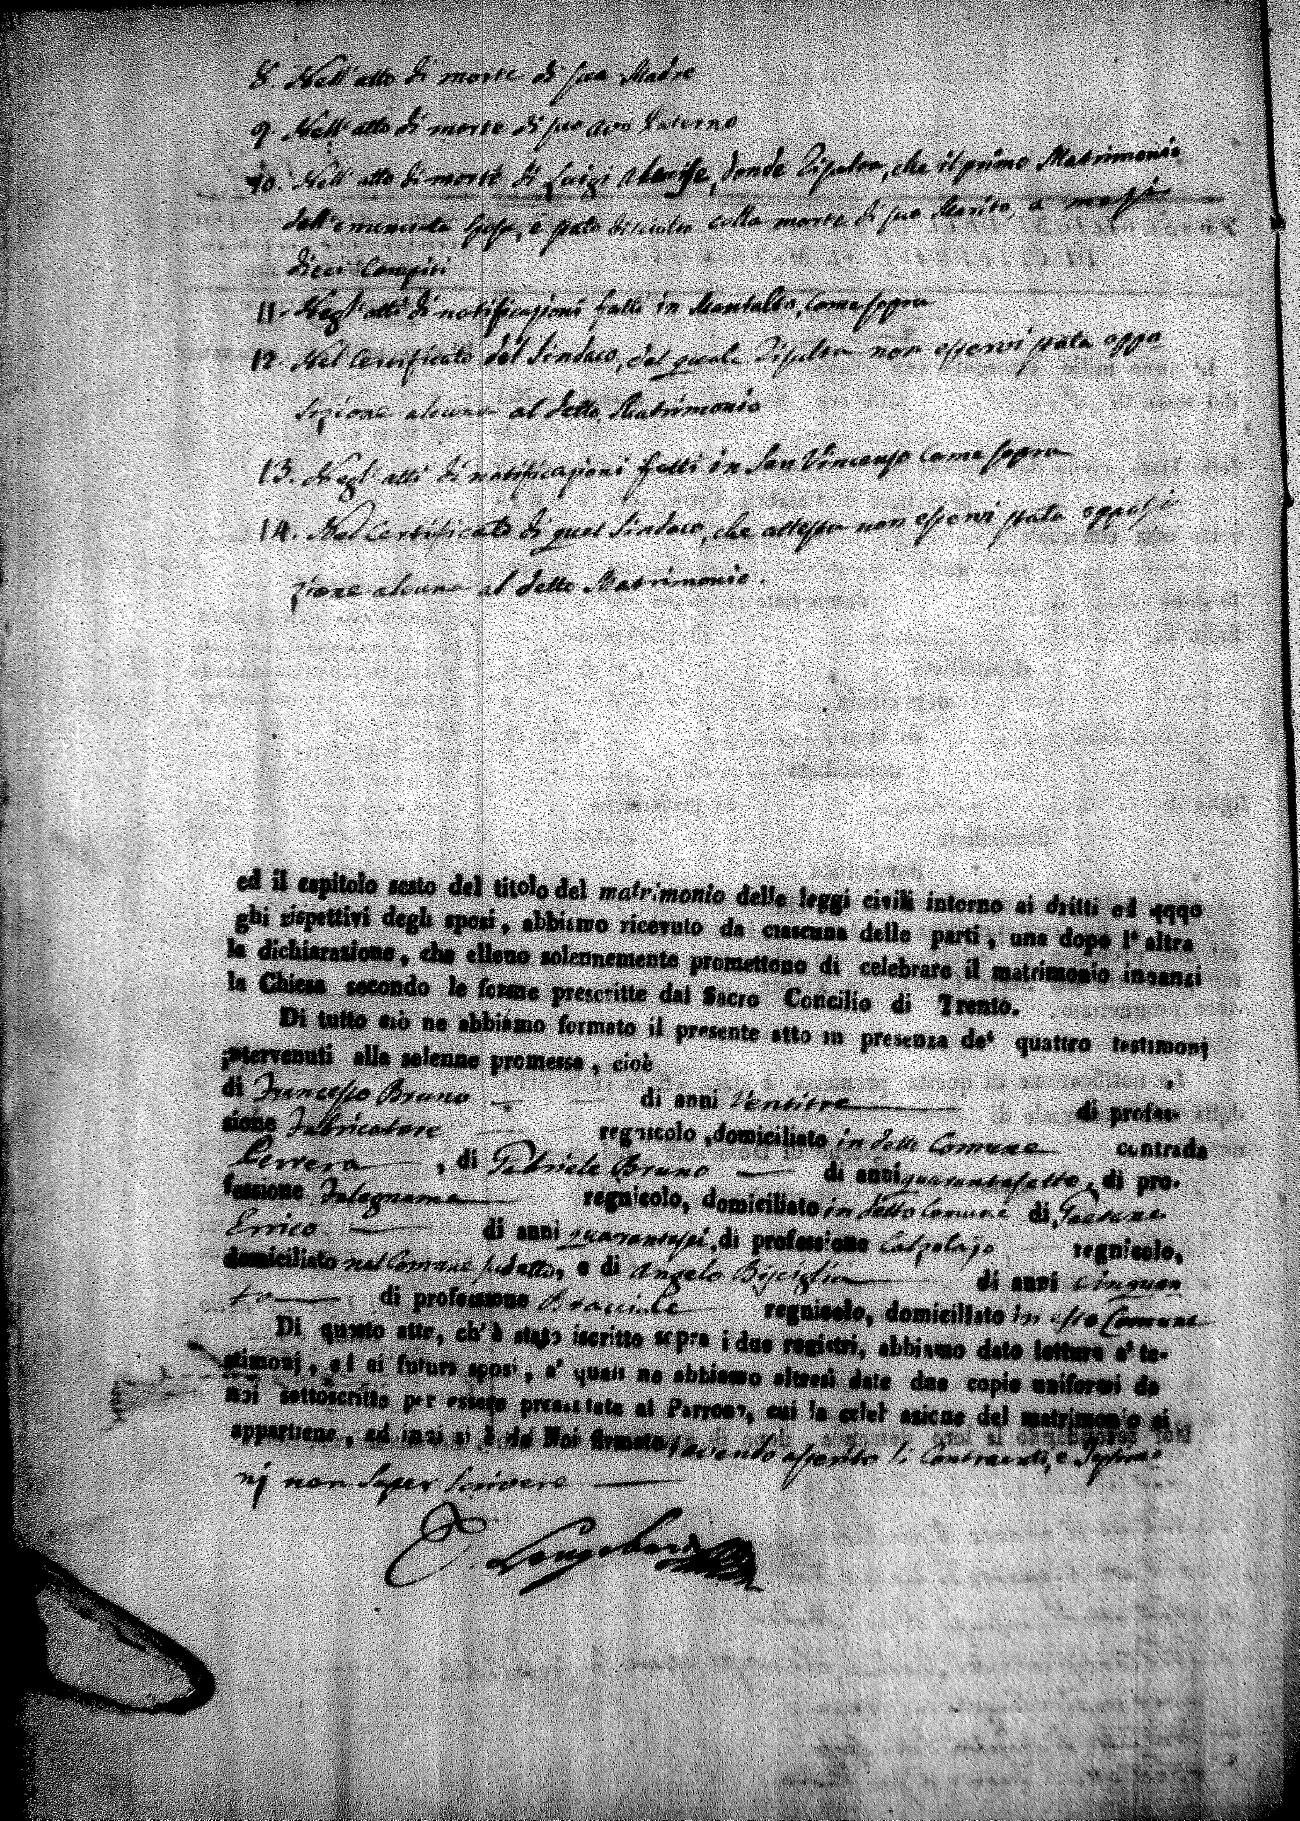 8. Nell'atto di morte di sua Madre
9. Nell'atto di morte di suo avo Paterno
10. Nell'atto di morte di Luigi, donde risulta, che il primo Matrimonio
dell'enunciata Sposa, è stato disciolto colla morte di suo Marito, a
dieci compiti
11. Negl'atti di notificazioni fatti in Montalto, come sopra
12. Nel Certificato del Sindaco, dal quale risulta non esservi stata oppo
sizione alcuna al detto Matrimonio
13. Negl'atti di notificazioni fatti in San Vincenzo come sopra
14. Nel Certificato di quel Sindaco, che attesta non esservi stata opposi
zione alcuna al detto Matrimonio.
ed il capitolo sesto del titolo del matrimonio delle leggi civili intorno ai dritti ed
ghi rispettivi degli sposi, abbiamo ricevuto da ciascuna delle parti, una dopo l'altra
la dichiarazione, che elleno solennemente promettono di celebrare il matrimonio innanzi
la Chiesa secondo le forme prescritte dal Sacro Concilio di Trento.
Di tutto ciò ne abbiamo formato il presente atto in presenza de' quattro testimonj
intervenuti alla solenne promessa, cioè
di Francesco Bruno di anni Ventitre di profes-
sione Fabricatore regnicolo, domiciliato in detto Comune contrada
Perrera, di Gabriele Bruno di anni quarantasette, di pro-
fessione Falegname regnicolo, domiciliato in detto Comune di Gaetano
Errico di anni quarantasei, di professione Calzolajo regnicolo,
domiciliato nel Comune sudetto, e di Angelo di anni cinquan
ta di professione Bracciale regnicolo, domiciliato in esso Comune
Di questo atto, ch'è stato iscritto sopra i due registri, abbiamo dato lettura a' te-
stimonj, ed ai futuri sposi, a' quali ne abbiamo altresì date due copie uniformi da
noi sottoscritte per essere presentate al Parroco, cui la celebrazione del matrimonio si
appartiene, ed indi si è da Noi firmato avendo asserito li Contraenti, e Testimo
nj non saper scrivere